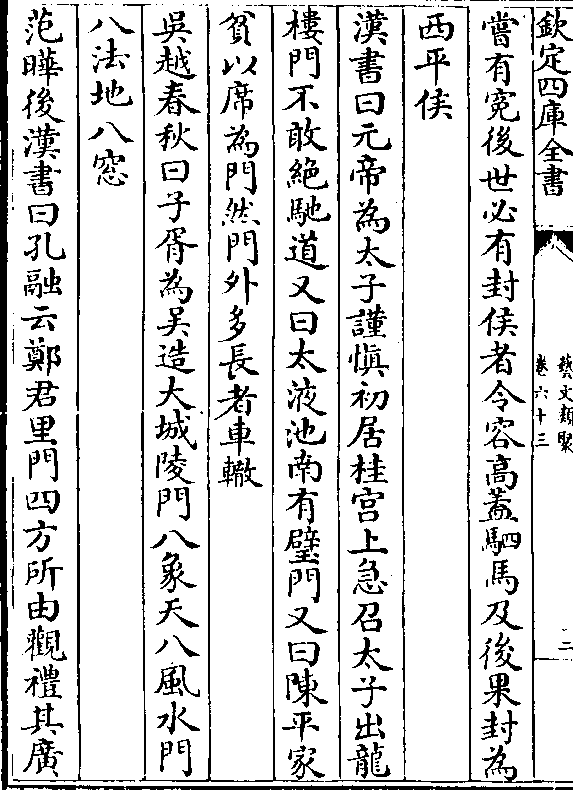 欽定四庫全書
藝文類聚
卷六十三
三
嘗有寃後世必有封侯者令容高葢駟馬及後果封為
西平侯
漢書曰元帝為太子謹慎初居桂宫上急召太子出龍
樓門不敢絶馳道又曰太液池南有璧門又曰陳平家
貧以席為門然門外多長者車轍
吳越春秋曰子胥為吳造大城陵門八象天八風水門
八法地八窓
范曄後漢書曰孔融云鄭君里門四方所由觀禮其廣